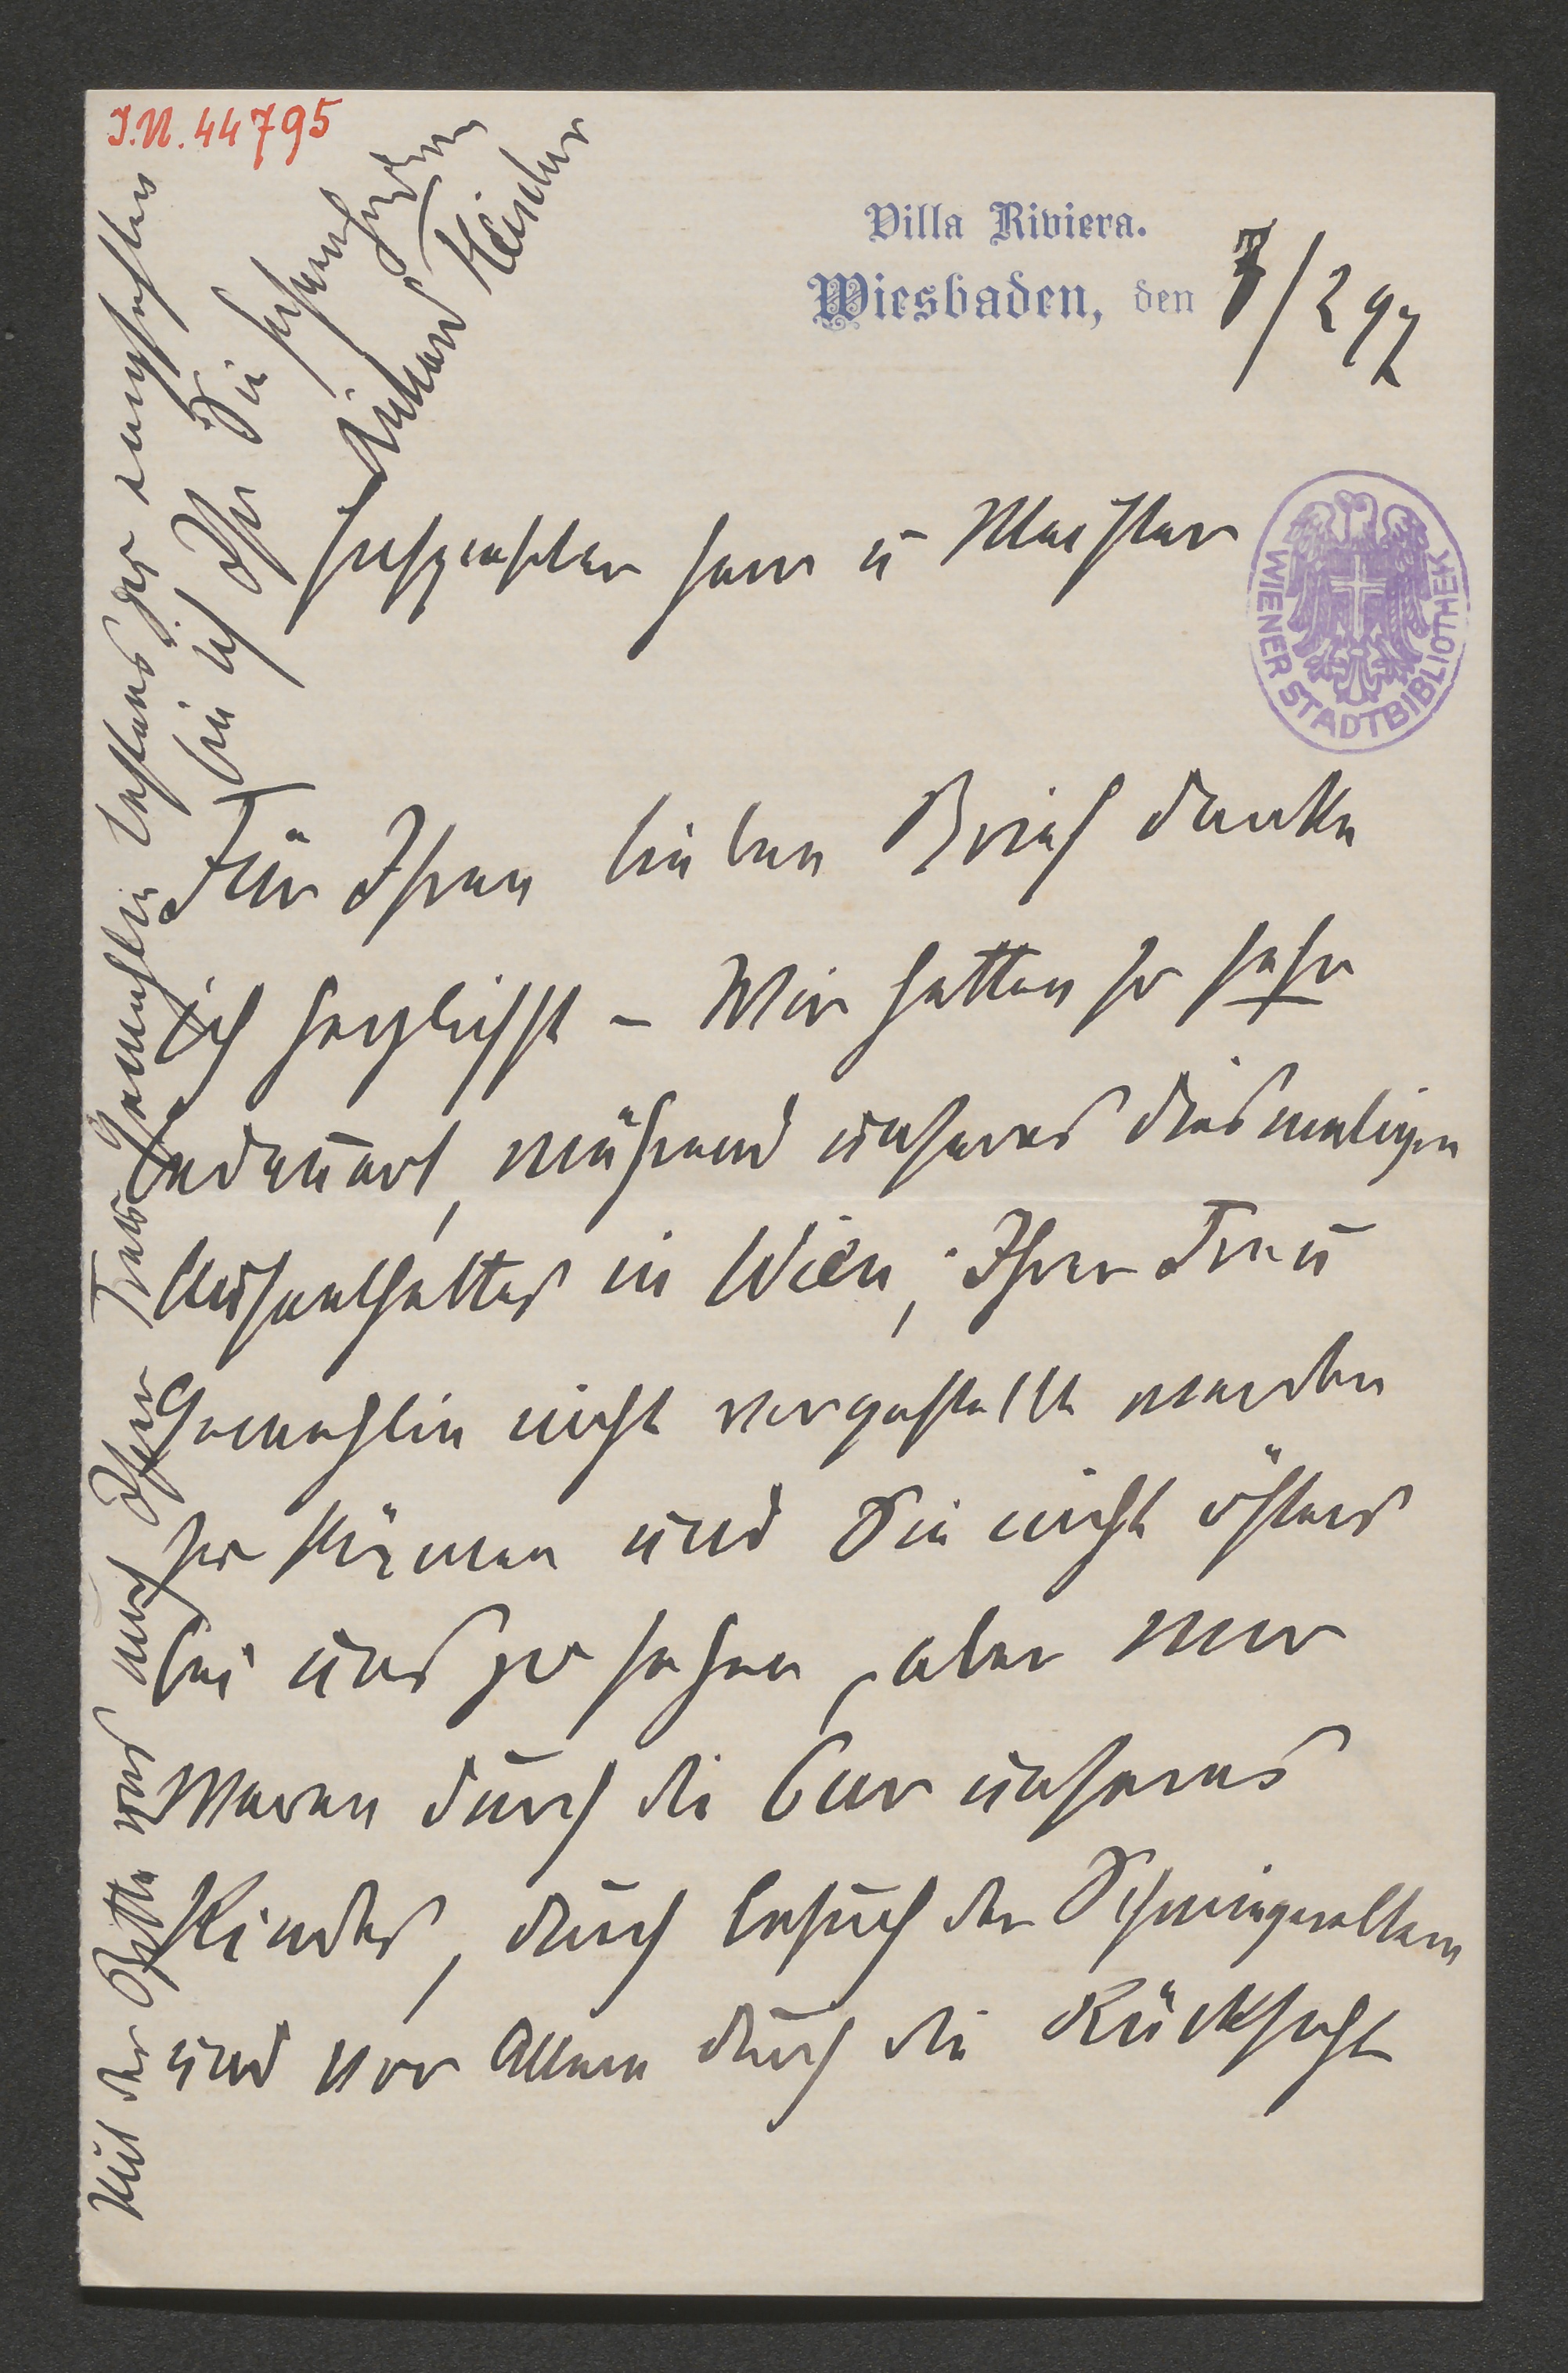 J.N. 44795
Villa Riviera.
Wiesbaden, den 7/2 97
WIENER STADTBIBLIOTHEK
Hochgeehrter Herr u Meister
Für Ihren lieben Brief danke
ich herzlichst – Wir hatten so sehr
bedauert, während unseres diesmaligen
Aufenthaltes in Wien, Ihrer Frau
Gemahlin nicht vorgestellt worden
zu können und Sie nicht öfters
bei uns zu sehen, aber wir
waren durch die Cur unseres
Kindes, durch Besuch der Schwiegereltern
und vor Allem durch die Rücksicht
Mit der Bitte uns auch Ihrer Frau Gemahlin bestens zu empfehlen
bin ich Ihr Sie hochverehrender
Richard Fleischer